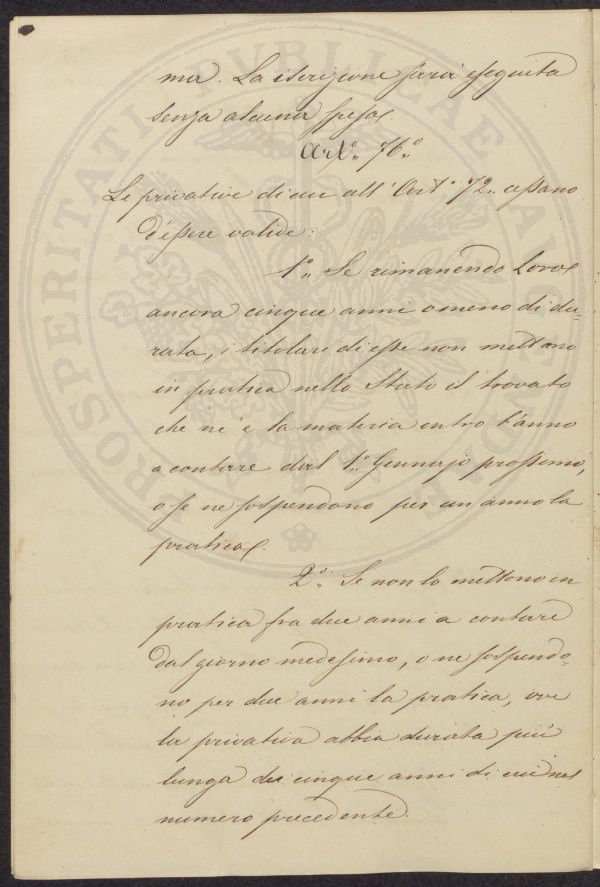 ma. La iscrizione sarà eseguita
senza alcuna spesa.
Art.° 76.°
Le privative di cui all'Art.° 72. cessano
d'essere valide:
1.° Se rimanendo Loro
ancora cinque anni o meno di du-
rata, i titolari di esse non mettono
in pratica nello Stato il trovato
che n'è la materia entro l'anno
a contare dal 1.° Gennajo prossimo,
o se ne sospendono per un anno la
pratica.
2.° Se non lo mettono in
pratica fra due anni a contare
dal giorno medesimo, o ne sospendo-
no per due anni la pratica, ove
la privativa abbia durata più
lunga dei cinque anni di cui nel
numero precedente.
PROSPERITATI PUBLICAE